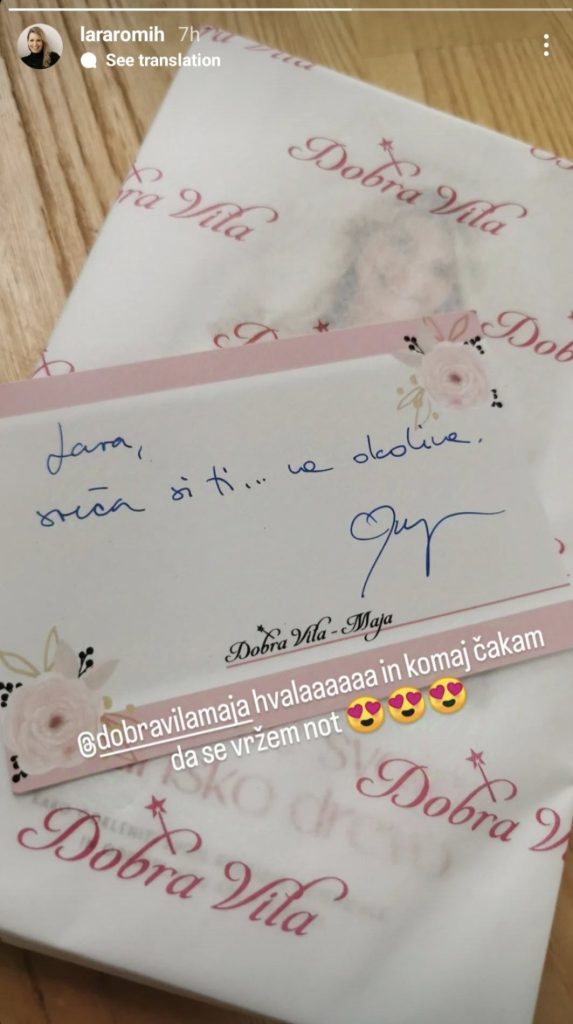 lararomih 7h
See translation
Dobra Vila
ra Vila
Dobra Vila
Dob
Lara,
sreča si ti... ne okolina.
Dobra Vila - Maja
@dobravilamaja hvalaaaaaa in komaj čakam
da se vržem not 😍😍😍
Dobra Vila
Dobra Vila